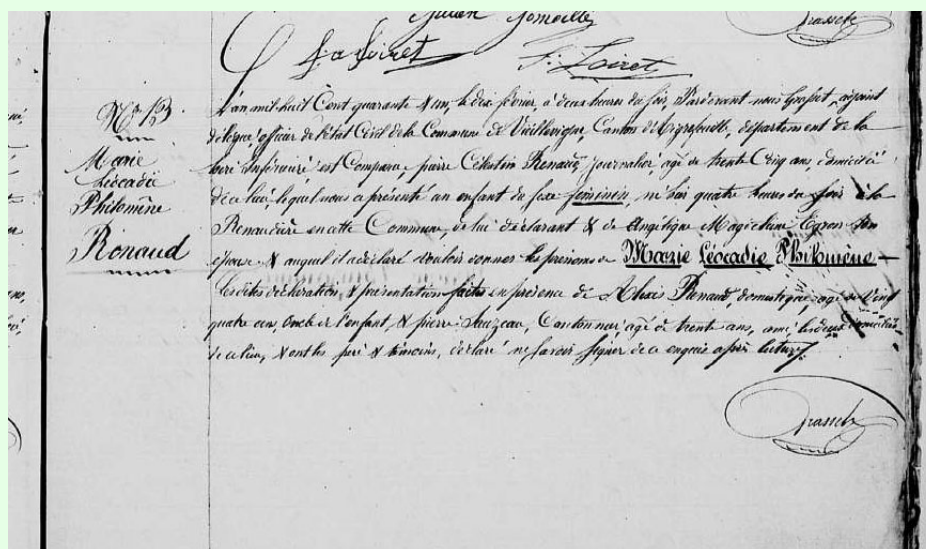 Julien Gomeille
Grasset
F. Loiret
N° 13
Marie
Léocadie
Philomène
Renaud
L'an mil huit Cent quarante & un, le dix février, à deux heures du soir, Pardevant nous Grasset, adjoint
délégué, officier de l'état Civil de la Commune de Vieillevigne, Canton d'Aigrefeuille, département de la
loire inférieure est Comparu pierre Célestin Renaud, journalier, agé de trente Cinq ans, domicilié
de ce lieu, lequel nous a présenté un enfant du sexe féminin, né hier quatre heures du soir à la
Renaudière en cette Commune, de lui déclarant & de Angélique Magdelaine Egron son
épouse & auquel il a déclaré vouloir donner les prénoms de Marie Léocadie Philomène –
Lesdites déclaration & présentation faites en présence de Alexis Renaud domestique, agé de Vingt
quatre ans, oncle de l'enfant, & pierre Sauzeau, Cantonnier agé de trente ans, ami, les deux domiciliés
de ce lieu, & ont les père & témoins, déclaré ne savoir signer de ce enquis après lecture.
Grasset